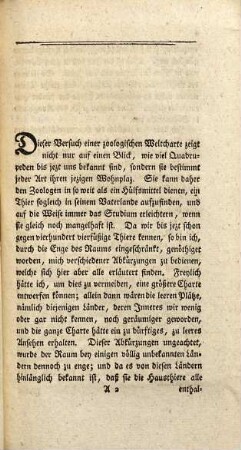 Dieser Versuch einer zoologischen Weltcharte zeigt
nicht nur auf einen Blick, wie viel Quadru-
peden bis jezt uns bekannt sind, sondern sie bestimmt
jeder Art ihren jezigen Wohnplaz. Sie kann daher
den Zoologen in so weit als ein Hülfsmittel dienen, ein
Thier sogleich in seinem Vaterlande aufzufinden, und
auf die Weise immer das Studium erleichtern, wenn
sie gleich noch mangelhaft ist. Da wir bis jezt schon
gegen vierhundert vierfüßige Thiere kennen, so bin ich,
durch die Enge des Raums eingeschränkt, genöthiget
worden, mich verschiedener Abkürzungen zu bedienen,
welche sich hier aber alle erläutert finden. Freylich
hätte ich, um dies zu vermeiden, eine größere Charte
entwerfen können; allein dann wären die leeren Pläze,
nämlich diejenigen Länder, deren Inneres wir wenig
oder gar nicht kennen, noch geräumiger geworden,
und die ganze Charte hätte ein zu dürftiges, zu leeres
Ansehen erhalten. Dieser Abkürzungen ungeachtet,
wurde der Raum bey einigen völlig unbekannten Län-
dern dennoch zu enge; und da es von diesen Ländern
hinlänglich bekannt ist, daß sie die Hausthiere alle
A 2 enthal-